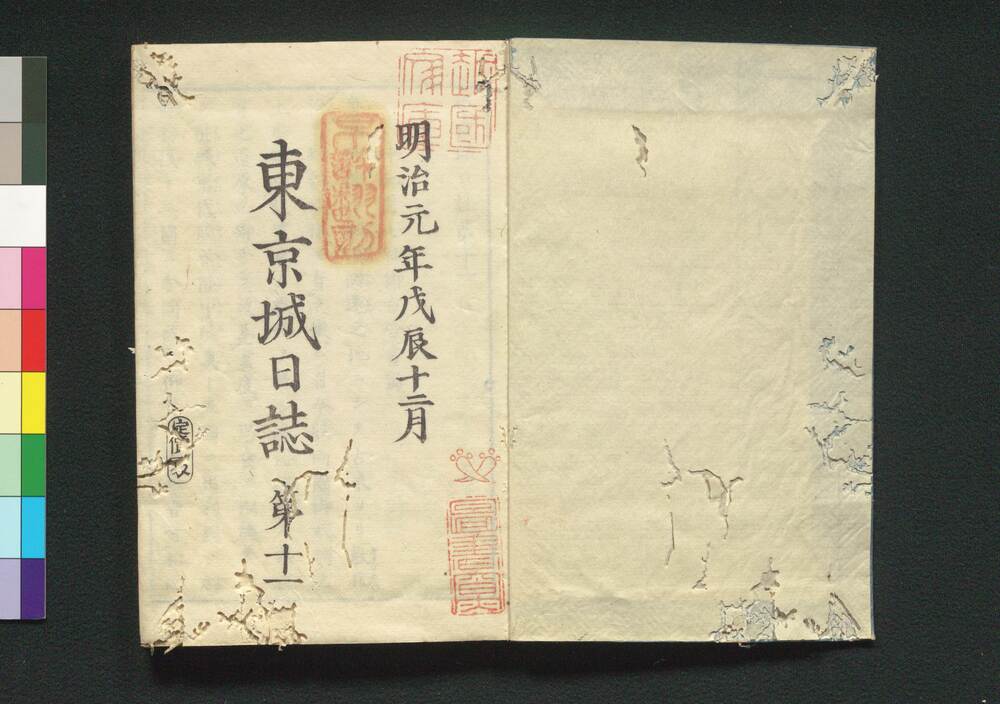 明治元年戊辰十二月
東京城日誌 第十一